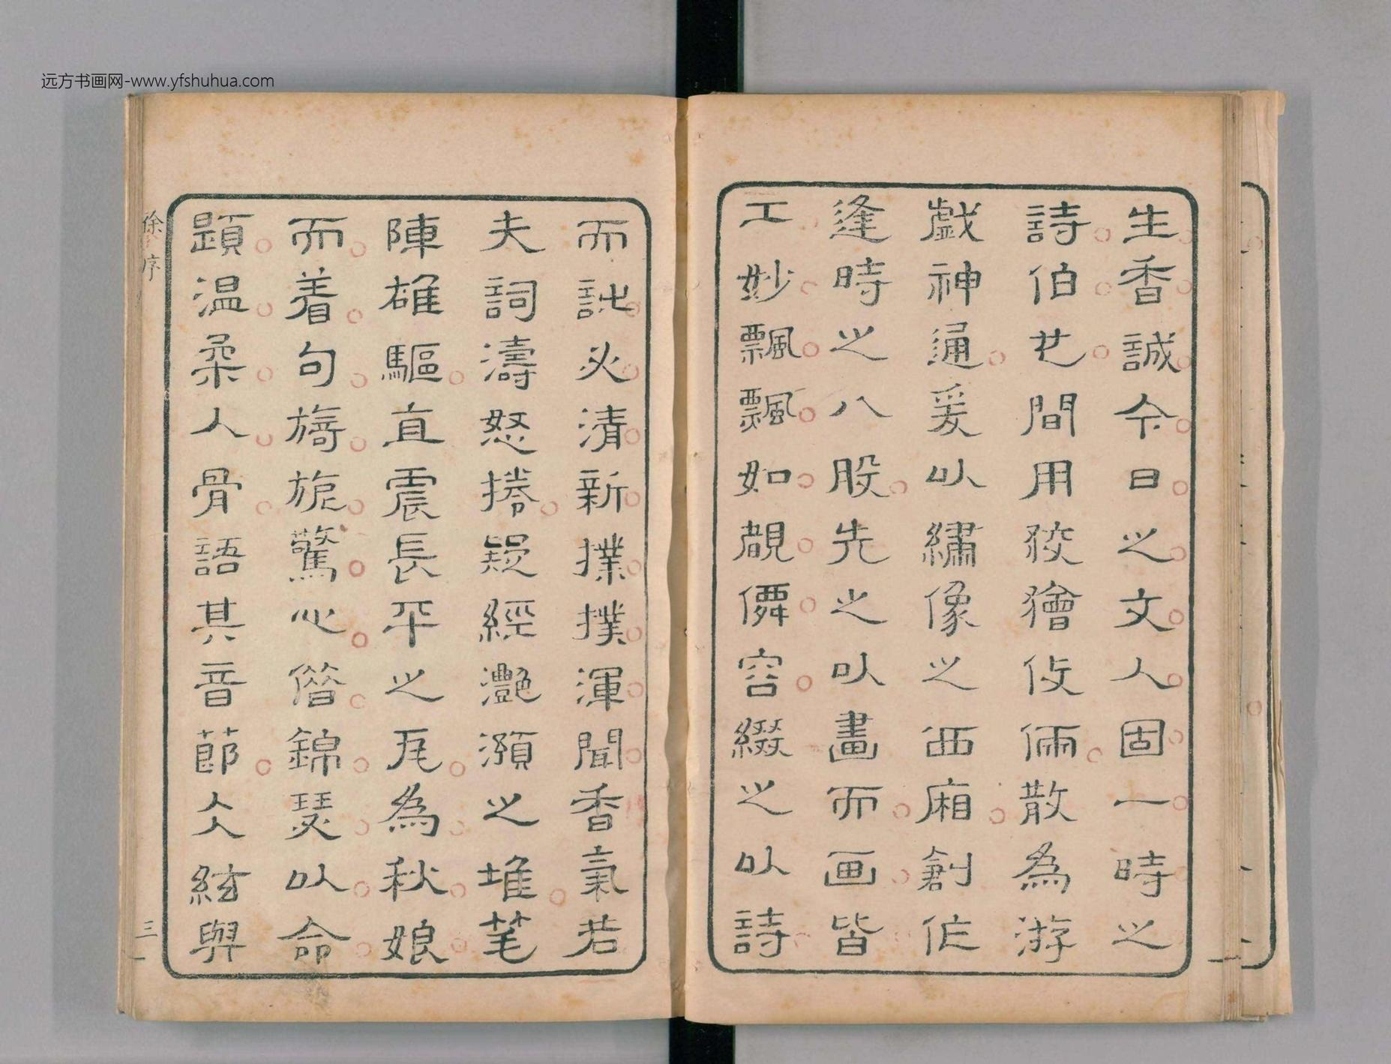 远方书画网-www.yfshuhua.com
生香誠令日之文人固一時之
詩伯世間用狡獪伎倆散為游
戯神通爰以繡像之西廂創作
逢時之八股先之以畫而画皆
工妙飄飄如覩僊容綴之以詩
而訛火清新撲撲渾聞香氣若
夫詞濤怒捲疑經灔澦之堆笔
陣雄驅直震長平之瓦為秋娘
而着句旖旎驚心僭錦瑟以命
題温柔人骨語其音節仌絃與
徐序
三